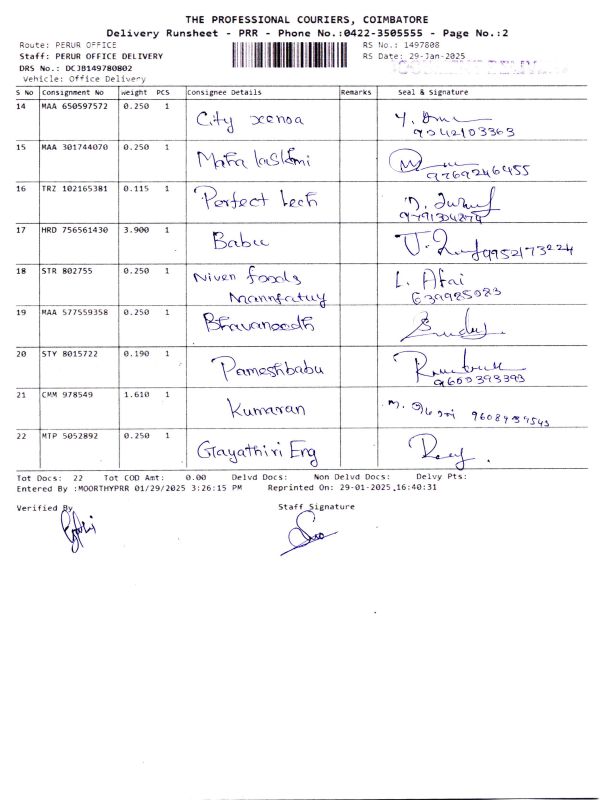 THE PROFESSIONAL COURIERS, COIMBATORE
Delivery Runsheet - PRR - Phone No.:0422-3505555 - Page No.:2
Route: PERUR OFFICE RS No.: 1497808
Staff: PERUR OFFICE DELIVERY RS Date: 29-Jan-2025
DRS No.: DCJB149780802
Vehicle: Office Delivery
S No Consignment No Weight PCS Consignee Details Remarks Seal & Signature
14 MAA 650597572 0.250 1 City
9042103363
15 MAA 301744070 0.250 1 Maha laskhmi
9769246455
16 TRZ 102165381 0.115 1 Perfect tech
9791304874
17 HRD 756561430 3.900 1 Babu
9952173224
18 STR 802755 0.250 1 Niven foods L. Afai
Mannfatuy 639985083
19 MAA 577559358 0.250 1
20 STY 8015722 0.190 1 Pameshbabu
9600393393
21 CMM 978549 1.610 1 Kumaran 9608939543
22 MTP 5052892 0.250 1 Gayathiri Eng
Tot Docs: 22 Tot COD Amt: 0.00 Delvd Docs: Non Delvd Docs: Delvy Pts:
Entered By :MOORTHYPRR 01/29/2025 3:26:15 PM Reprinted On: 29-01-2025,16:40:31
Verified By Staff Signature